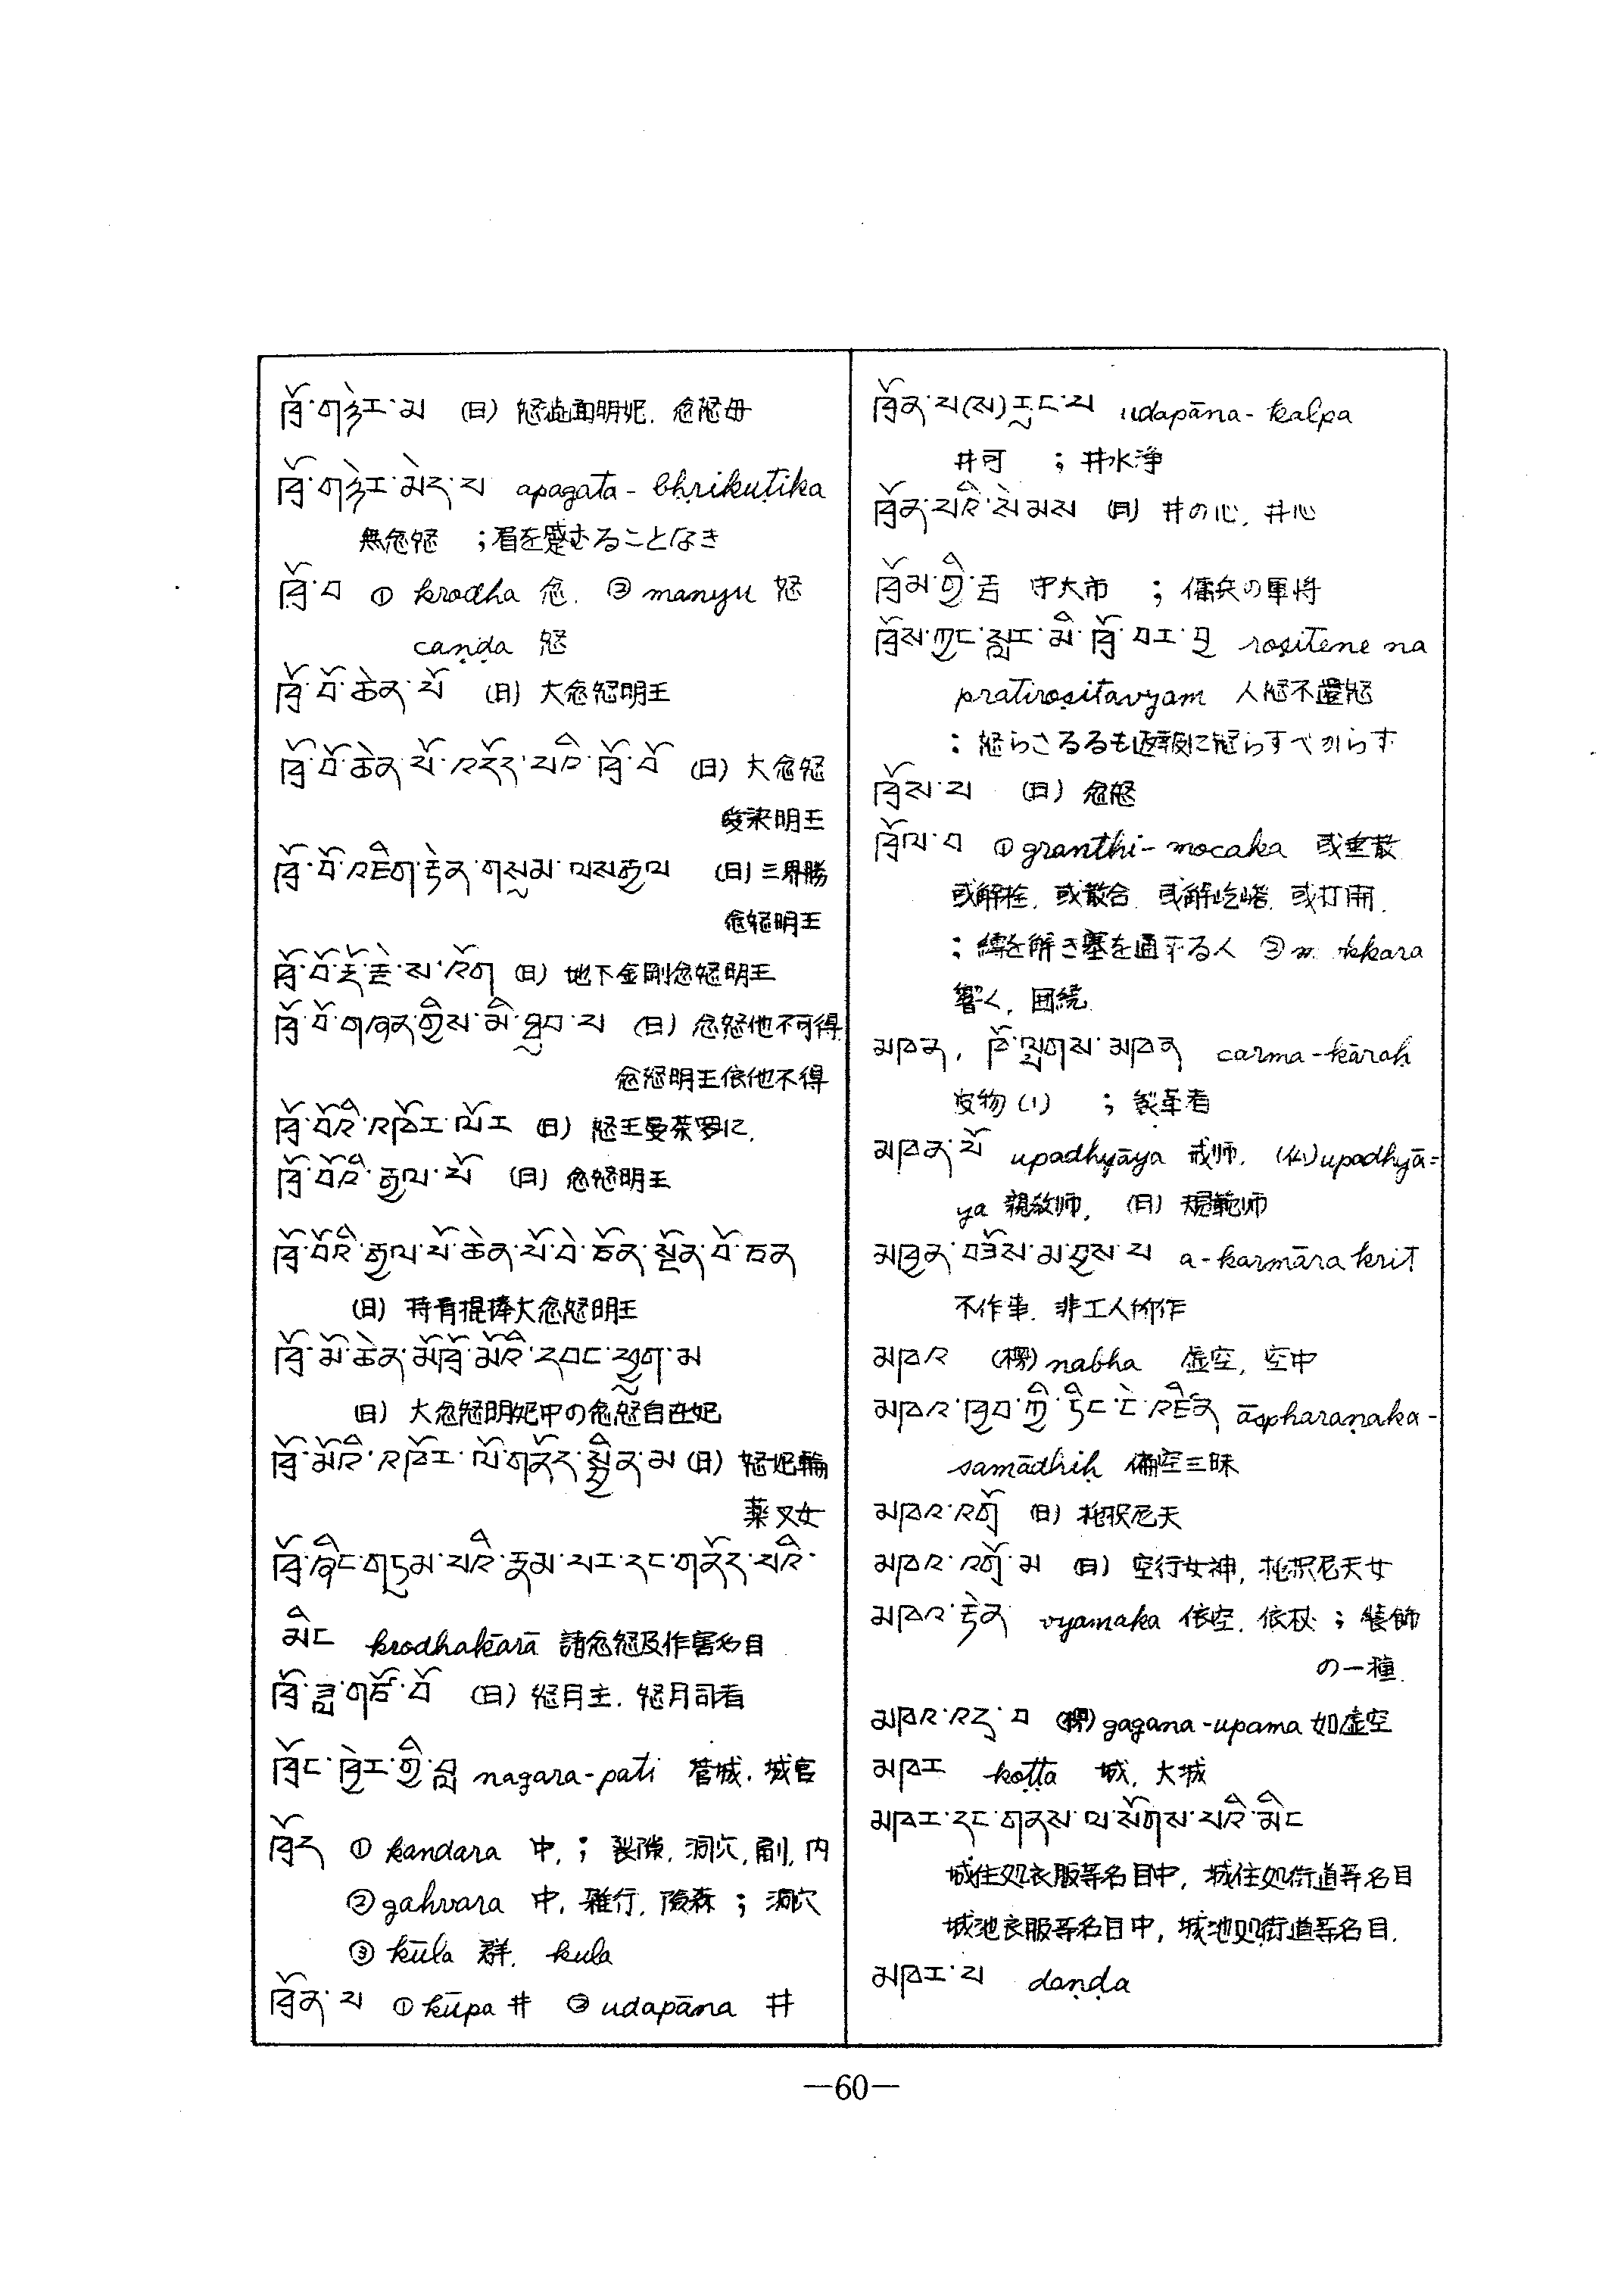 ཁྲོ་གཉེར་མ (日) 怒皺面明妃. 忿怒母
ཁྲོ་གཉེར་མེད་པ apagata-bhṛikuṭika
無忿怒 ; 眉を蹙むることなき
ཁྲོ་བ ① krodha 忿. ② manyu 怒
caṇḍa 怒
ཁྲོ་བོ་ཆེན་པོ (日) 大忿怒明王
ཁྲོ་བོ་ཆེན་པོ་འདོད་པའི་ཁྲོ་བོ (日) 大忿怒
愛染明王
ཁྲོ་བོ་འཇིག་རྟེན་གསུམ་ལས་རྒྱལ (日) 三界勝
忿怒明王
ཁྲོ་བོ་རྡོ་རྗེ་ས་འོག (日) 地下金剛忿怒明王
ཁྲོ་བོ་གཞན་གྱིས་མི་ཐུབ་པ (日) 忿怒他不可得.
忿怒明王依他不得
ཁྲོ་བོའི་འཁོར་ལོར (日) 怒王曼荼羅に.
ཁྲོ་བོའི་རྒྱལ་པོ (日) 忿怒明王
ཁྲོ་བོའི་རྒྱལ་པོ་ཆེན་པོ་བེ་ཅོན་སྔོན་པོ་ཅན
(日) 持青棍棒大忿怒明王
ཁྲོ་མོ་ཆེན་མོ་ཁྲོ་མོའི་དབང་ཕྱུག་མ
(日) 大忿怒明妃中の忿怒自在妃
ཁྲོ་མོའི་འཁོར་ལོ་གནོད་སྦྱིན་མ (日) 怒妃輪
薬叉女
ཁྲོ་ཞིང་གཏུམ་པའི་རྣམ་པར་དང་གནོད་པའི་
མིང krodhakārā 諸忿怒及作害名目
ཁྲོ་ཟླ་གཙོ་བོ (日) 怒月主. 怒月司者
ཁྲོང་ཁྱེར་གྱི་བླ nagara-pati 管城. 城官
ཁྲོད ① kandara 中, ; 裂隙. 洞穴, 内
② gahvara 中. 雜行. 險森 ; 洞穴
③ kūla 群. kula
ཁྲོན་པ ① kūpa 井 ② udapāna 井
ཁྲོན་པ(ས)རུང་པ udapāna-kalpa
井可 ; 井水淨
ཁྲོན་པའི་སེམས (日) 井の心, 井心
ཁྲོམ་གྱི་རུ 守大市 ; 傭兵の軍将
ཁྲོས་ཀྱང་སླར་མི་ཁྲོ་བར་བྱ roṣitene na
pratiroṣitavyam 人怒不還怒
: 怒らさるるも返報に怒らすべからず
ཁྲོས་པ (日) 忿怒
ཁྲོལ་བ ① granthi-mocaka 或垂散
或解栓. 或散合. 或打開.
; 縛を解き塞を通ずる人
響く, 囲繞.
མཁན, ཁོ་ལྤགས་མཁན carma-kāraḥ
皮物(1) ; 製革者
མཁན་པོ upadhyāya 戒师. (仏) upadhyā=
ya 親教师, (日) 規範师
མཁྱན་བཅོས་མ་བྱས་པ a-karmāra kriṭ
不作事. 非工人所作
མཁའ (梵) nabha 虚空, 空中
མཁའ་ཁྱབ་ཀྱི་ཏིང་ངེ་འཛིན āspharaṇaka-
samādhiḥ 徧空三昧
མཁའ་འགྲོ (日) 拖枳尼天
མཁའ་འགྲོ་མ (日) 空行女神, 拖枳尼天女
མཁའ་རྟེན vyamaka 依空. 依杖 ; 装飾
の一種.
མཁའ་འདྲ་བ (梵) gagana-upama 如虚空
མཁར koṭṭa 城, 大城
མཁར་དང་གནས་ལ་སོགས་པའི་མིང
城住処衣服等名目中, 城住処街道等名目
城池衣服等名目中, 城池処街道等名目.
མཁར་བ daṇḍa
—60—